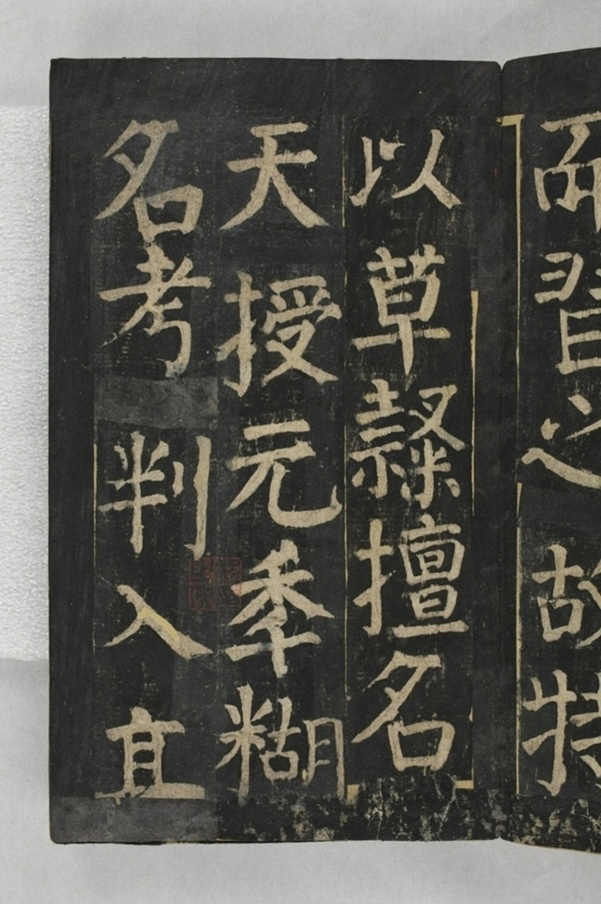 而習之故特
以草隸擅名
天授元秊糊
名考判入直